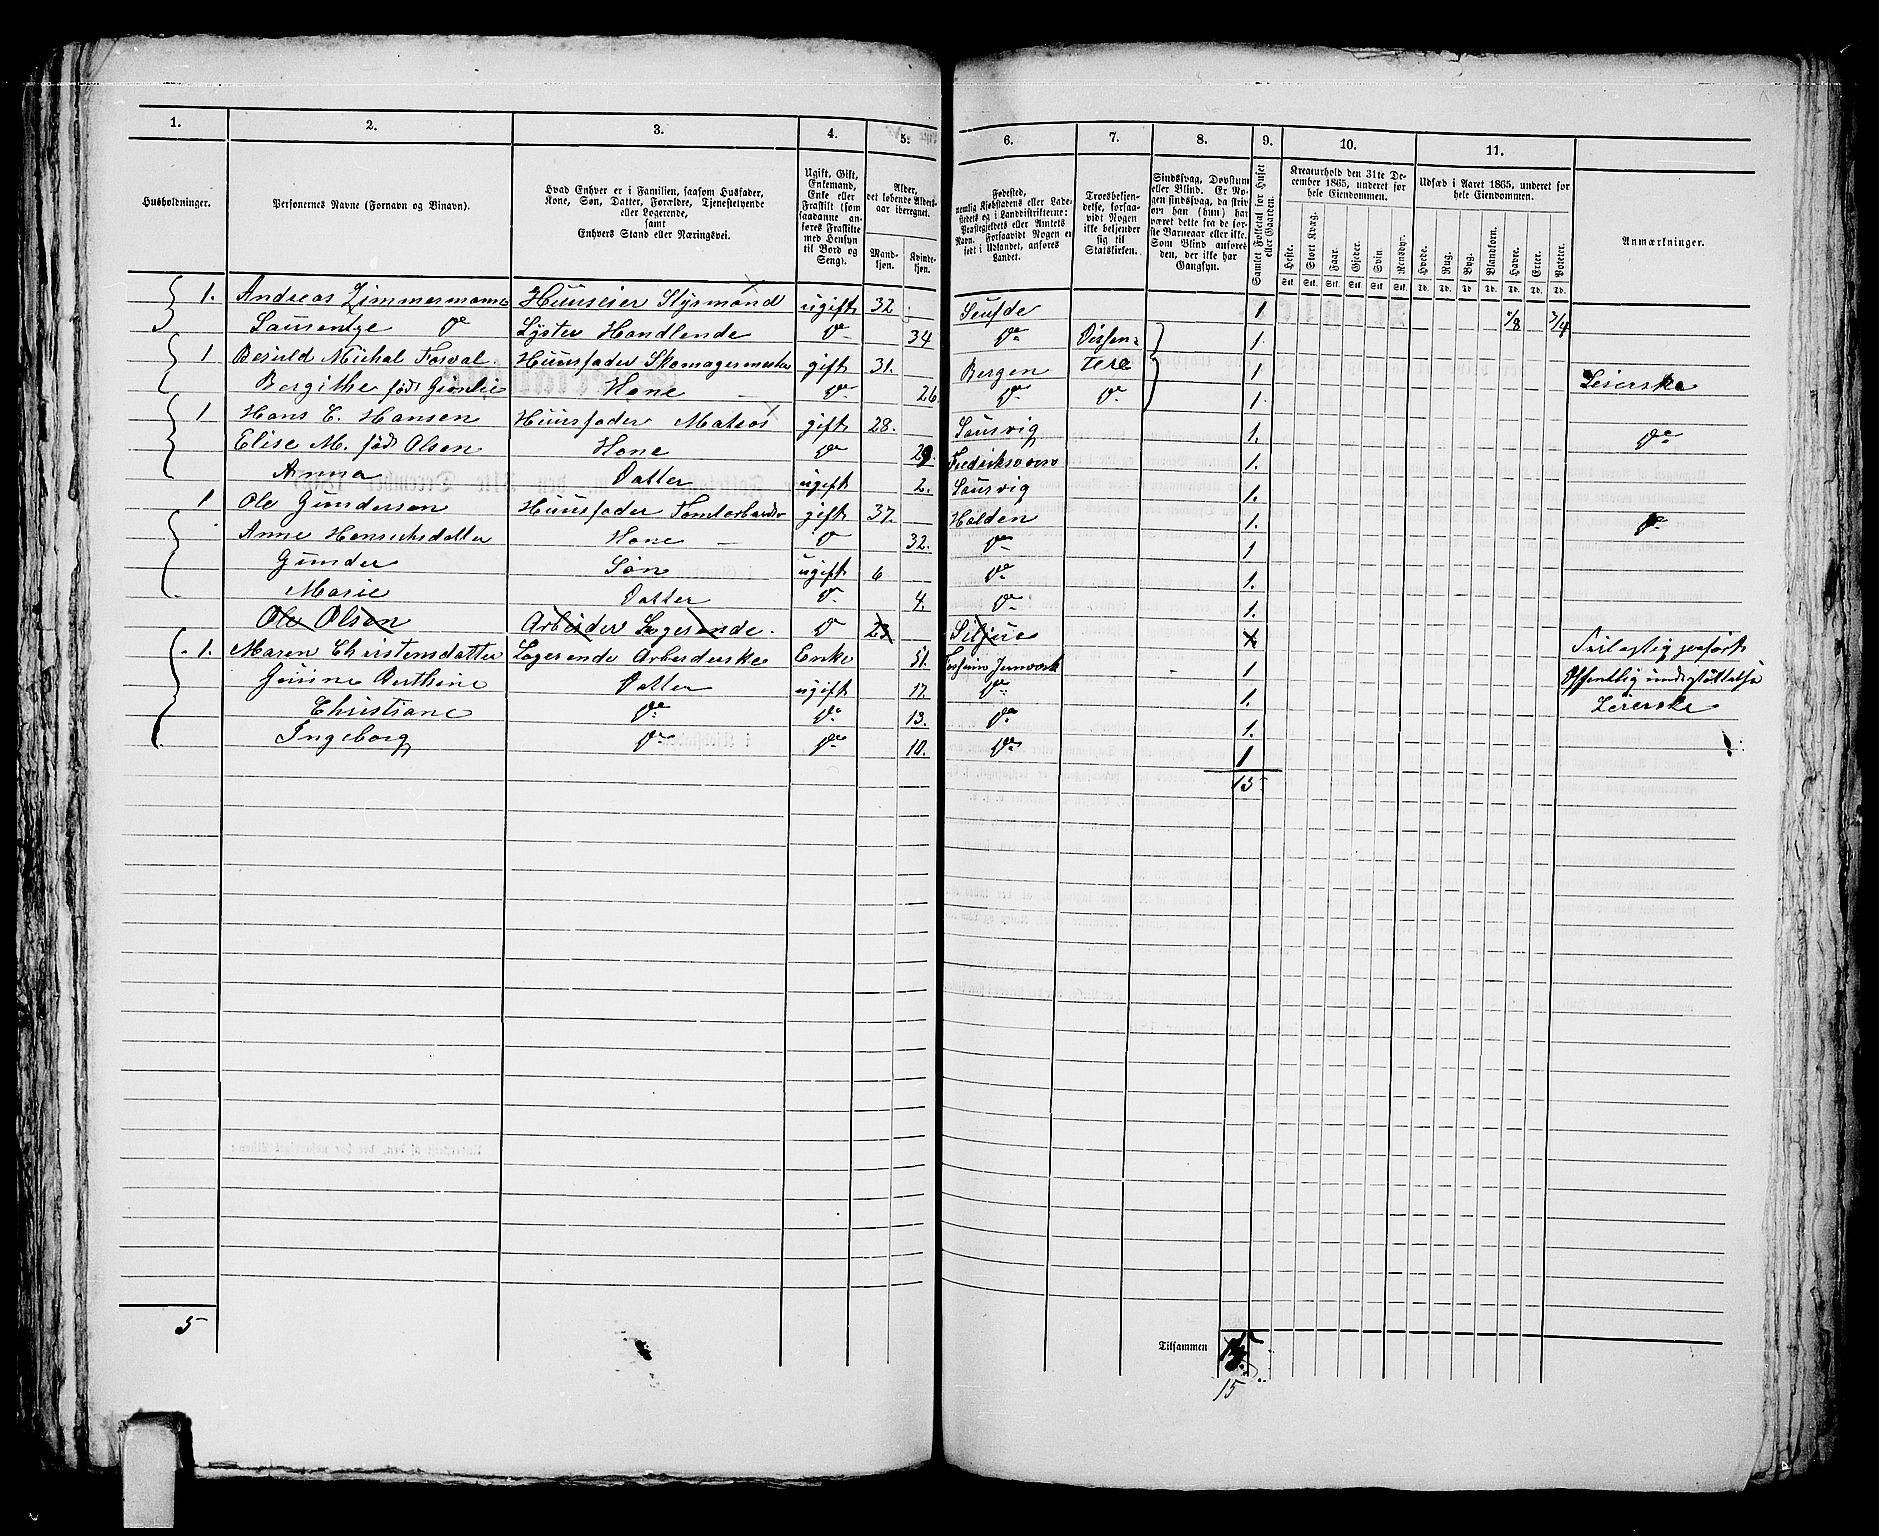 1. 2. 3. 4. 5. 6. 7. 8. 9. 10. 11.
Husholdninger.
Personernes Navne (Fornavn og Binavn).
Hvad Enhver er i Familien, saasom Husfader, Kone, Søn, Datter, Forældre, Tjenestetyende eller Logerende, samt Enhvers Stand eller Næringsvei.
Ugift, Gift, Enkemand, Enke eller Fraskilt (som saadanne anføres Fraskilte med Hensyn til Bord og Seng).
Alder, det løbende Aldersaar iberegnet.
Mandkjøn. Kvindekjøn.
Fødested, nemlig Kjøbstadens eller Ladestedets og i Landdistrikterne: Præstegjeldets eller Amtets Navn. Forsaavidt Nogen er født i Udlandet, anføres Landet.
Troesbekjendelse, forsaavidt Nogen ikke bekjender sig til Statskirken.
Sindssvag, Døvstum eller Blind. Er Nogen sindssvag, da skriv om han (hun) har været dette fra de første Barneaar eller ikke. Som Blind anføres den, der ikke har Gangsyn.
Samlet Folketal for Huset eller Gaarden.
Kreaturhold den 31te December 1865, underet for hele Eiendommen.
Heste. Stort Kvæg. Faar. Gjeder. Svin. Rensdyr.
Udsæd i Aaret 1865, underet for hele Eiendommen.
Hvede. Rug. Byg. Blandkorn. Havre. Erter. Poteter.
Anmærkninger.
Stk. Stk. Stk. Stk. Stk. Stk. Td. Td. Td. Td. Td. Td. Td.
1. Andreas Zimmermann Huuseier Slysmand ugift 32 1 1/8 3/4
Laurentze Do Lyster Handlende Do 34 Do Dissen- 1.
1 Michal Husfader Skomagermester gift 31. Bergen tere 1
Bergithe født Kone Do 26. Do Do 1. Leierske
1 Hans C. Hansen Huusfader Matros gift 28. Laurvig 1.
Elise M. født Olsen Kone Do 29. Fredriksværn 1. Do
Anna Datter ugift 2. Laurvig 1.
1 Ole Gundersen Huusfader Tomtarbeider gift 37. Holden 1. Do
Anne Henrichsdatter Kone Do 32. Do 1
Gunder Søn ugift 6 Do 1.
Marie Datter Do 4. Do 1.
Ole Olsen Arbeider Logerende. Do 23 x
1. Maren Christensdatter Logerende Arbeiderske Enke 51. 1 Offentlig understøttelse
Berthine Datter ugift 17. Do 1. Leierske
Christiane Do Do 13. Do 1.
Ingeborg Do Do 10. Do 1
15
5 Tilsammen
15